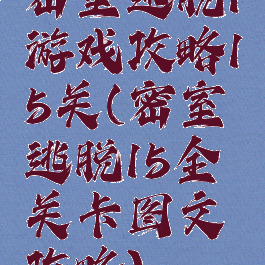 密室逃脱1
游戏攻略1
5关(密室
逃脱15全
关卡图文
攻略)